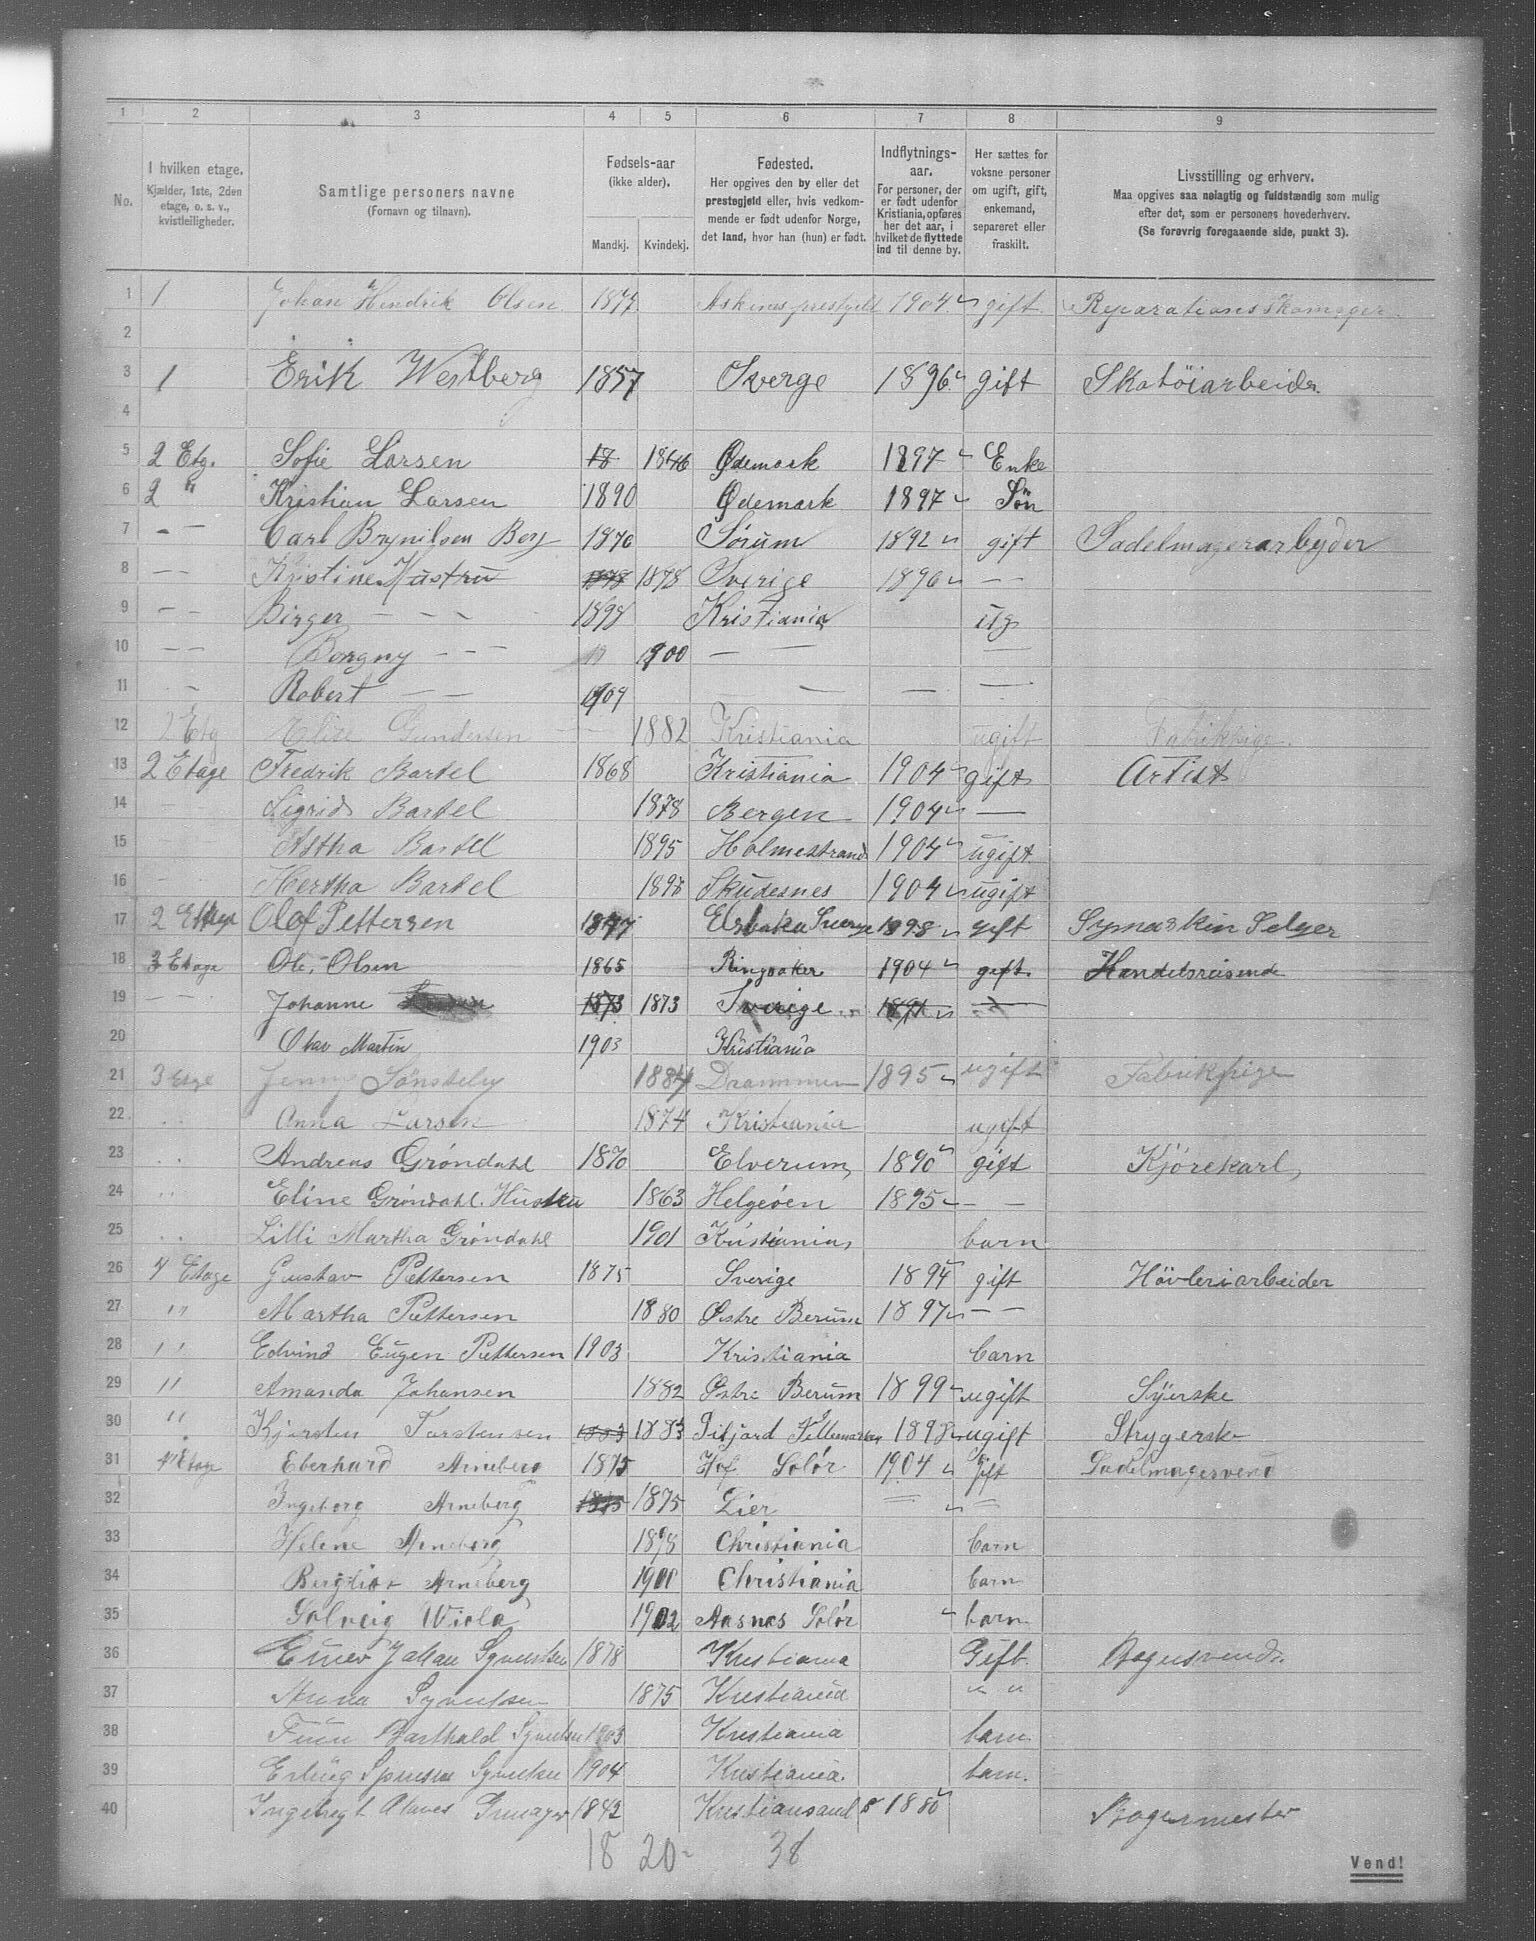 1 2 3 4 5 6 7 8 9
No. I hvilken etage. Kjælder, 1ste, 2den etage, o. s. v., kvistleiligheder. Samtlige personers navne (Fornavn og tilnavn). Fødsels-aar (ikke alder). Mandkj. Kvindekj. Fødested. Her opgives den by eller det prestegjeld eller, hvis vedkommende er født udenfor Norge, det land, hvor han (hun) er født. Indflytnings-aar. For personer, der er født udenfor Kristiania, opføres her det aar, i hvilket de flyttede ind til denne by. Her sættes for voksne personer om ugift, gift, enkemand, separeret eller fraskilt. Livsstilling og erhverv. Maa opgives saa nøiagtig og fuldstændig som mulig efter det, som er personens hovederhverv. (Se forøvrig foregaaende side, punkt 3).
1 1 Johan Hendrik Olsen 1877 1904 gift Reparations Skomager
2
3 1 Erik Westberg 1857 Sverge 1896 gift Skotöiarbeider
4
5 2 Etg. Sofie Larsen 18 1846 Ødemark 1897 Enke
6 2 " Kristian Larsen 1890 Ødemark 1897 Sön
7 - - Carl Brynilsen Berg 1870 Sørum 1892 gift Sadelmagerarbyder
8 - - Kristine Hustru 1878 1878 Sverige 1896 - -
9 - - Birger - - - 1898 Kristiania ug
10 - - Borgny - - - 19 1900 - -
11 - Robert - - 1904 - - -
12 2 Etg Elise Gundersen 1882 Kristiania ugift Fabrikpige.
13 2 Etage Fredrik Bartel 1868 Kristiania 1904 gift Artist
14 - - Sigrid Bartel 1878 Bergen 1904 -
15 - - Astha Bartel 1895 Holmestrand 1904 ugift
16 - - Hertha Bartel 1898 Skudesnes 1904 ugift
17 2 Etage Olof Pettersen 1877 1898 gift Symaskin Selger
18 3 Etage Ole Olsen 1865 Ringsaker 1904 gift Handelsreisende
19 - - Johanne 1873 1873 Sverige 1891 -
20 Olav Martin 1903 Kristiania
21 3 Etge Jenny Sönsteby 1884 Drammen 1895 ugift Fabrikpige
22 . . Anna Larsen 1874 Kristiania ugift
23 . . Andreas Gröndahl 1870 Elverum 1890 gift Kjörekarl,
24 . . Eline Gröndahl. Hustru 1863 Helgeöen 1895 - -
25 . . Lilli Martha Gröndahl 1901 Kristiania, barn
26 4 Etage Gustav Pettersen 1875 Sverige 1894 gift Hövleriarbeider
27 " Martha Pettersen 1880 Østre Berum 1897 - -
28 " Edvind Eugen Pettersen 1903 Kristiania barn
29 " Amanda Johansen 1882 Østre Berum 1899 ugift Syerske
30 " Kjersten Torstensen 1883 1883 1898 ugift Strygerske
31 4 Etage Eberhard Arneberg 1875 Hof Solör 1904 Gift Sadelmagersvend
32 Ingeborg Arneberg 1875 1875 Lier = =
33 Helene Arneberg 1898 Christiania barn
34 Bergliot Arneberg 1900 Christiania barn
35 Solveig Wiola 1902 Aasnes Solör barn
36 Einer Johan 1878 Kristiania Gift. Bagersvend.
37 Anna 1875 Kristiania " "
38 Finn Barthold 1903 Kristiania barn
39 Erling 1904 Kristiania. barn.
40 Ingebregt Olaves 1842 Kristiansand S 1880 Bagermester
18 20 - 38
Vend!